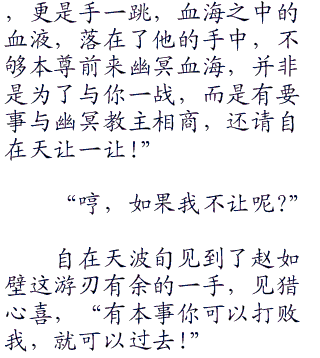 ，更是手一跳，血海之中的
血液，落在了他的手中，不
够本尊前来幽冥血海，并非
是为了与你一战，而是有要
事与幽冥教主相商，还请自
在天让一让!”
“哼，如果我不让呢?”
自在天波旬见到了赵如
壁这游刃有余的一手，见猎
心喜，“有本事你可以打败
我，就可以过去!”